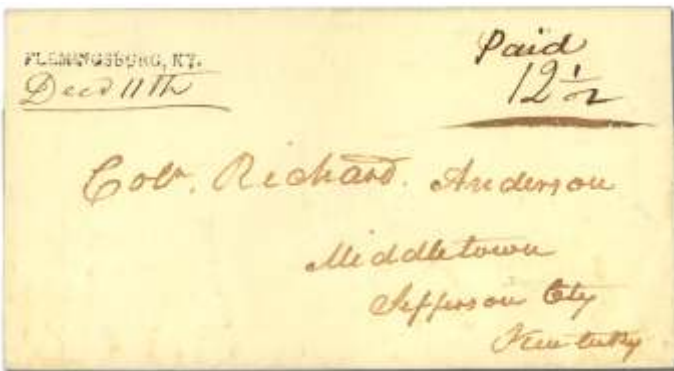 FLEMINGSBURG, KY.
Decr 11th
Paid
12½
Colo. Richard. Anderson
Middletown
Jefferson Cty
Kentucky